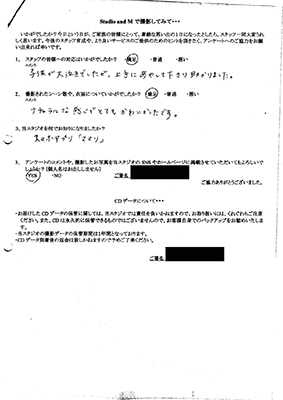 Studio and M で撮影してみて・・・
いかがでしたか？今日という日が、ご家族の皆様にとって、素敵な思い出の1日になったとしたら、スタッフ一同大変うれ
しく思います。今後のスタッフ育成や、より良いサービスのご提供のためのヒントを頂きたく、アンケートへのご協力をお願
い出来れば幸いです。
1. スタッフの皆様への対応はいかがでしたか？ ・満足 ・普通 ・悪い
コメント
子供が大泣きでしたが、上手にあやして下さり助かりました。
2. 撮影されたシーン数や、衣装についていかがでしたか？ ・満足 ・普通 ・悪い
コメント
ナチュラルな感じでとてもかわいかったです。
3. 当スタジオを何でお知りになりましたか？
スマホアプリ「ママリ」
3. アンケートのコメントや、撮影したお写真を当スタジオの SNS やホームページに掲載させていただいてもよろしいで
しょうか？（個人名はお出ししません）
・YES ・NO ご署名
ご協力ありがとうございました。
CDデータについて・・・
・お渡ししたCDデータの保管に関しては、当スタジオでは責任を負いかねますので、お取り扱いには、くれぐれもご注意
ください。また、CDは永久的に保管できるものではございませんので、お客様自身でのバックアップをお勧めいたしま
す。
・当スタジオの撮影データの保管期間は1年間となっております。
・CDデータ到着後の返金は致しかねますので予めご了承ください。
ご署名